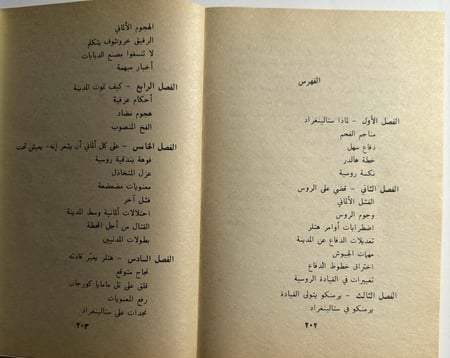 الفهرس
الفصل الأول - لماذا ستالينغراد
مناجم الفحم
دفاع سهل
خطة هالدر
نكسة روسية
الفصل الثاني - قضي على الروس
الفشل الألماني
وجوم الروس
اضطرابات أوامر هتلر
تعديلات الدفاع عن المدينة
مهمات الجيوش
اختراق خطوط الدفاع
تغييرات في القيادة الروسية
الفصل الثالث - يرمنكو يتولى القيادة
يرمنكو في ستالينغراد
٢٠٢
الهجوم الألماني
الرفيق خروتشوف يتكلم
لا تنسفوا مصنع الدبابات
أخبار مبهمة
الفصل الرابع - كيف تموت المدينة
أحكام عرفية
هجوم مضاد
الفخ المنصوب
الفصل الخامس - على كل ألماني أن يشعر إنه - يعيش تحت
فوهة بندقية روسية
عزل المتخاذل
معنويات متضعضعة
فشل آخر
احتلالات ألمانية وسط المدينة
القتال من أجل المحطة
بطولات المدنيين
الفصل السادس - هتلر يغيّر قادته
نجاح متوقع
قلق على تل مامايا كورجان
رفع المعنويات
نجدات على ستالينغراد
٢٠٣